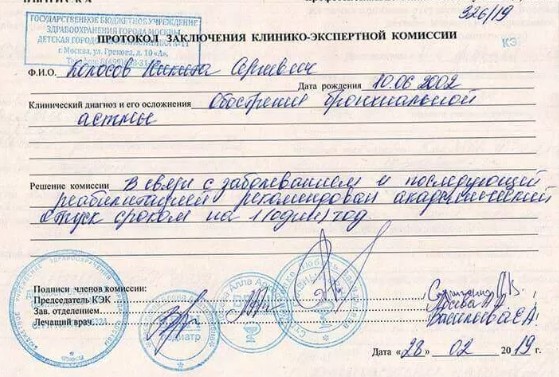 326/19
ГОСУДАРСТВЕННОЕ БЮДЖЕТНОЕ УЧРЕЖДЕНИЕ
ЗДРАВООХРАНЕНИЯ ГОРОДА МОСКВЫ
ПРОТОКОЛ ЗАКЛЮЧЕНИЯ КЛИНИКО-ЭКСПЕРТНОЙ КОМИССИИ
г. Москва, ул. Грекова, д. 10
Ф.И.О. Колосов Никита Сергеевич
Дата рождения 10.06 2002
Клинический диагноз и его осложнения Обострения бронхиальной
астмы
Решение комиссии В связи с заболеванием и последующей
реабилитацией рекомендован академический
отпуск сроком на 1 (один) год
Подписи членов комиссии:
Председатель КЭК
Зав. отделением.
Лечащий врач. Васильева Е.А.
Дата «28» 02 2019 г.